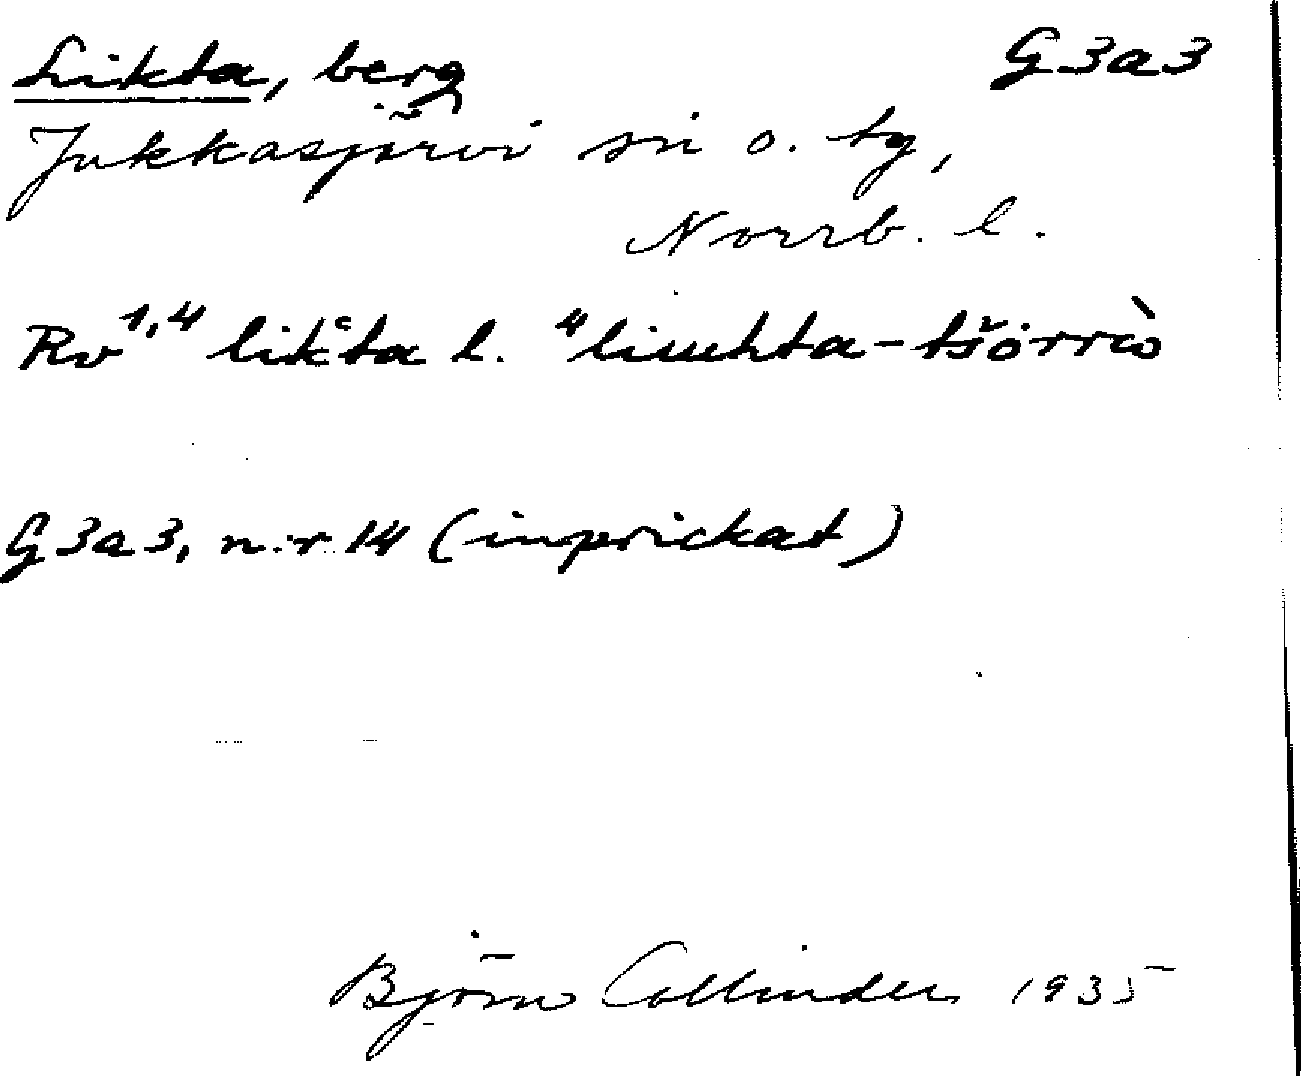 Likta, berg G3a3
Jukkasjärvi sn o. tg,
Norrb. l.
Rv 1,4 likta l. 4 liuhta-tšȯrrò
G3a3, n:r 14 (inprickat)
Björn Collinder 1935